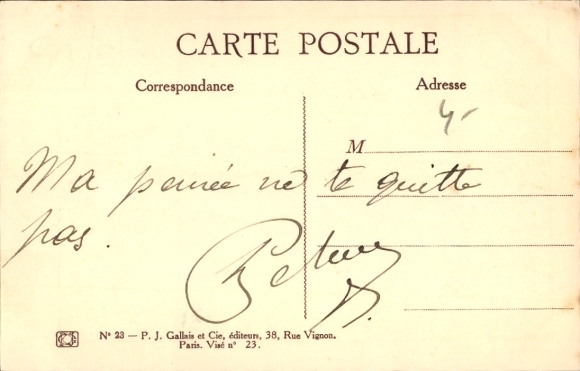 CARTE POSTALE
Correspondance
Adresse
4-
M
Ma pensée ne te quitte
pas.
Nº 23 — P. J. Gallais et Cie, éditeurs, 38, Rue Vignon.
Paris. Visé nº 23.